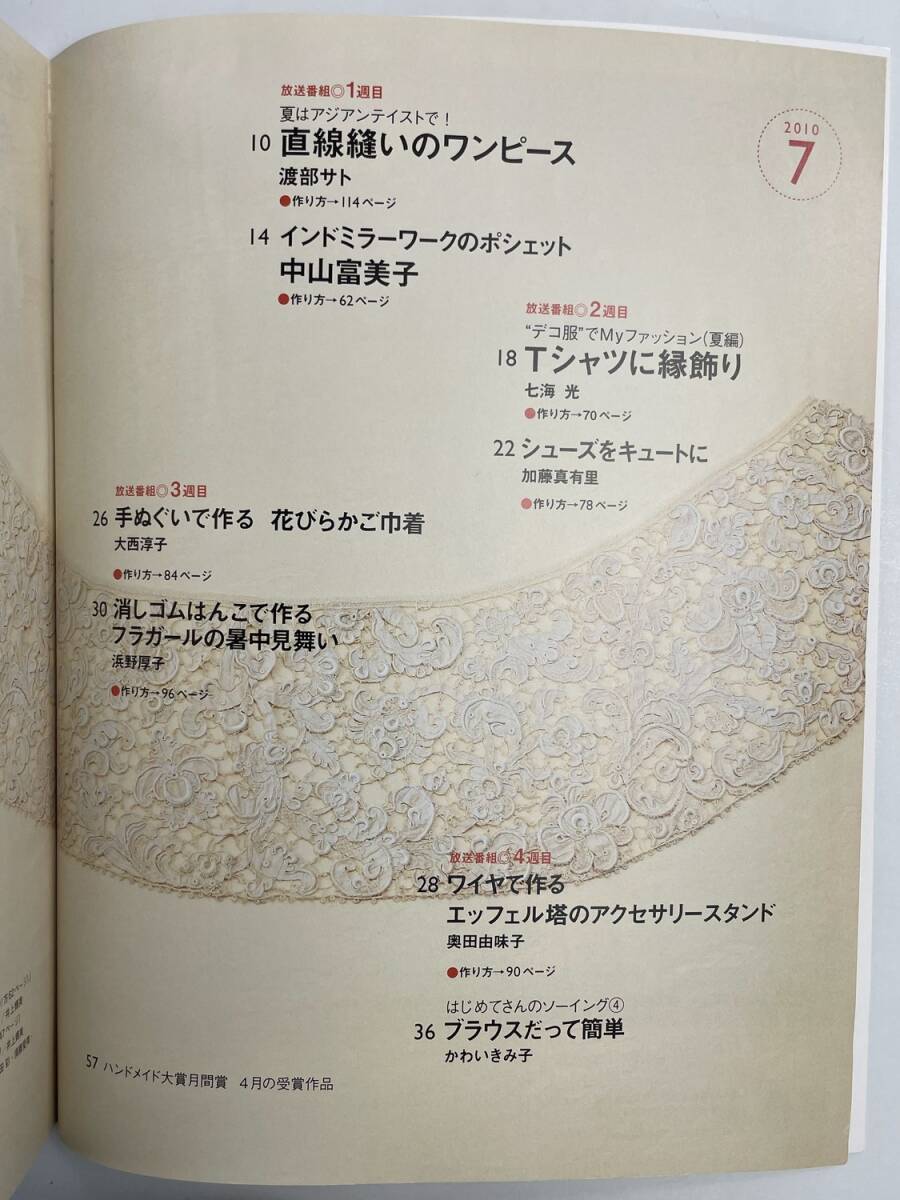 放送番組◎1週目
夏はアジアンテイストで！
10 直線縫いのワンピース
渡部サト
●作り方→114ページ
2010
7
14 インドミラーワークのポシェット
中山富美子
●作り方→62ページ
放送番組◎2週目
“デコ服”でMyファッション(夏編)
18 Tシャツに縁飾り
七海 光
●作り方→70ページ
22 シューズをキュートに
加藤真有里
●作り方→78ページ
放送番組◎3週目
26 手ぬぐいで作る 花びらかご巾着
大西淳子
●作り方→84ページ
30 消しゴムはんこで作る
フラガールの暑中見舞い
浜野厚子
●作り方→96ページ
放送番組◎4週目
28 ワイヤで作る
エッフェル塔のアクセサリースタンド
奥田由味子
●作り方→90ページ
はじめてさんのソーイング④
36 ブラウスだって簡単
かわいきみ子
57 ハンドメイド大賞月間賞 4月の受賞作品